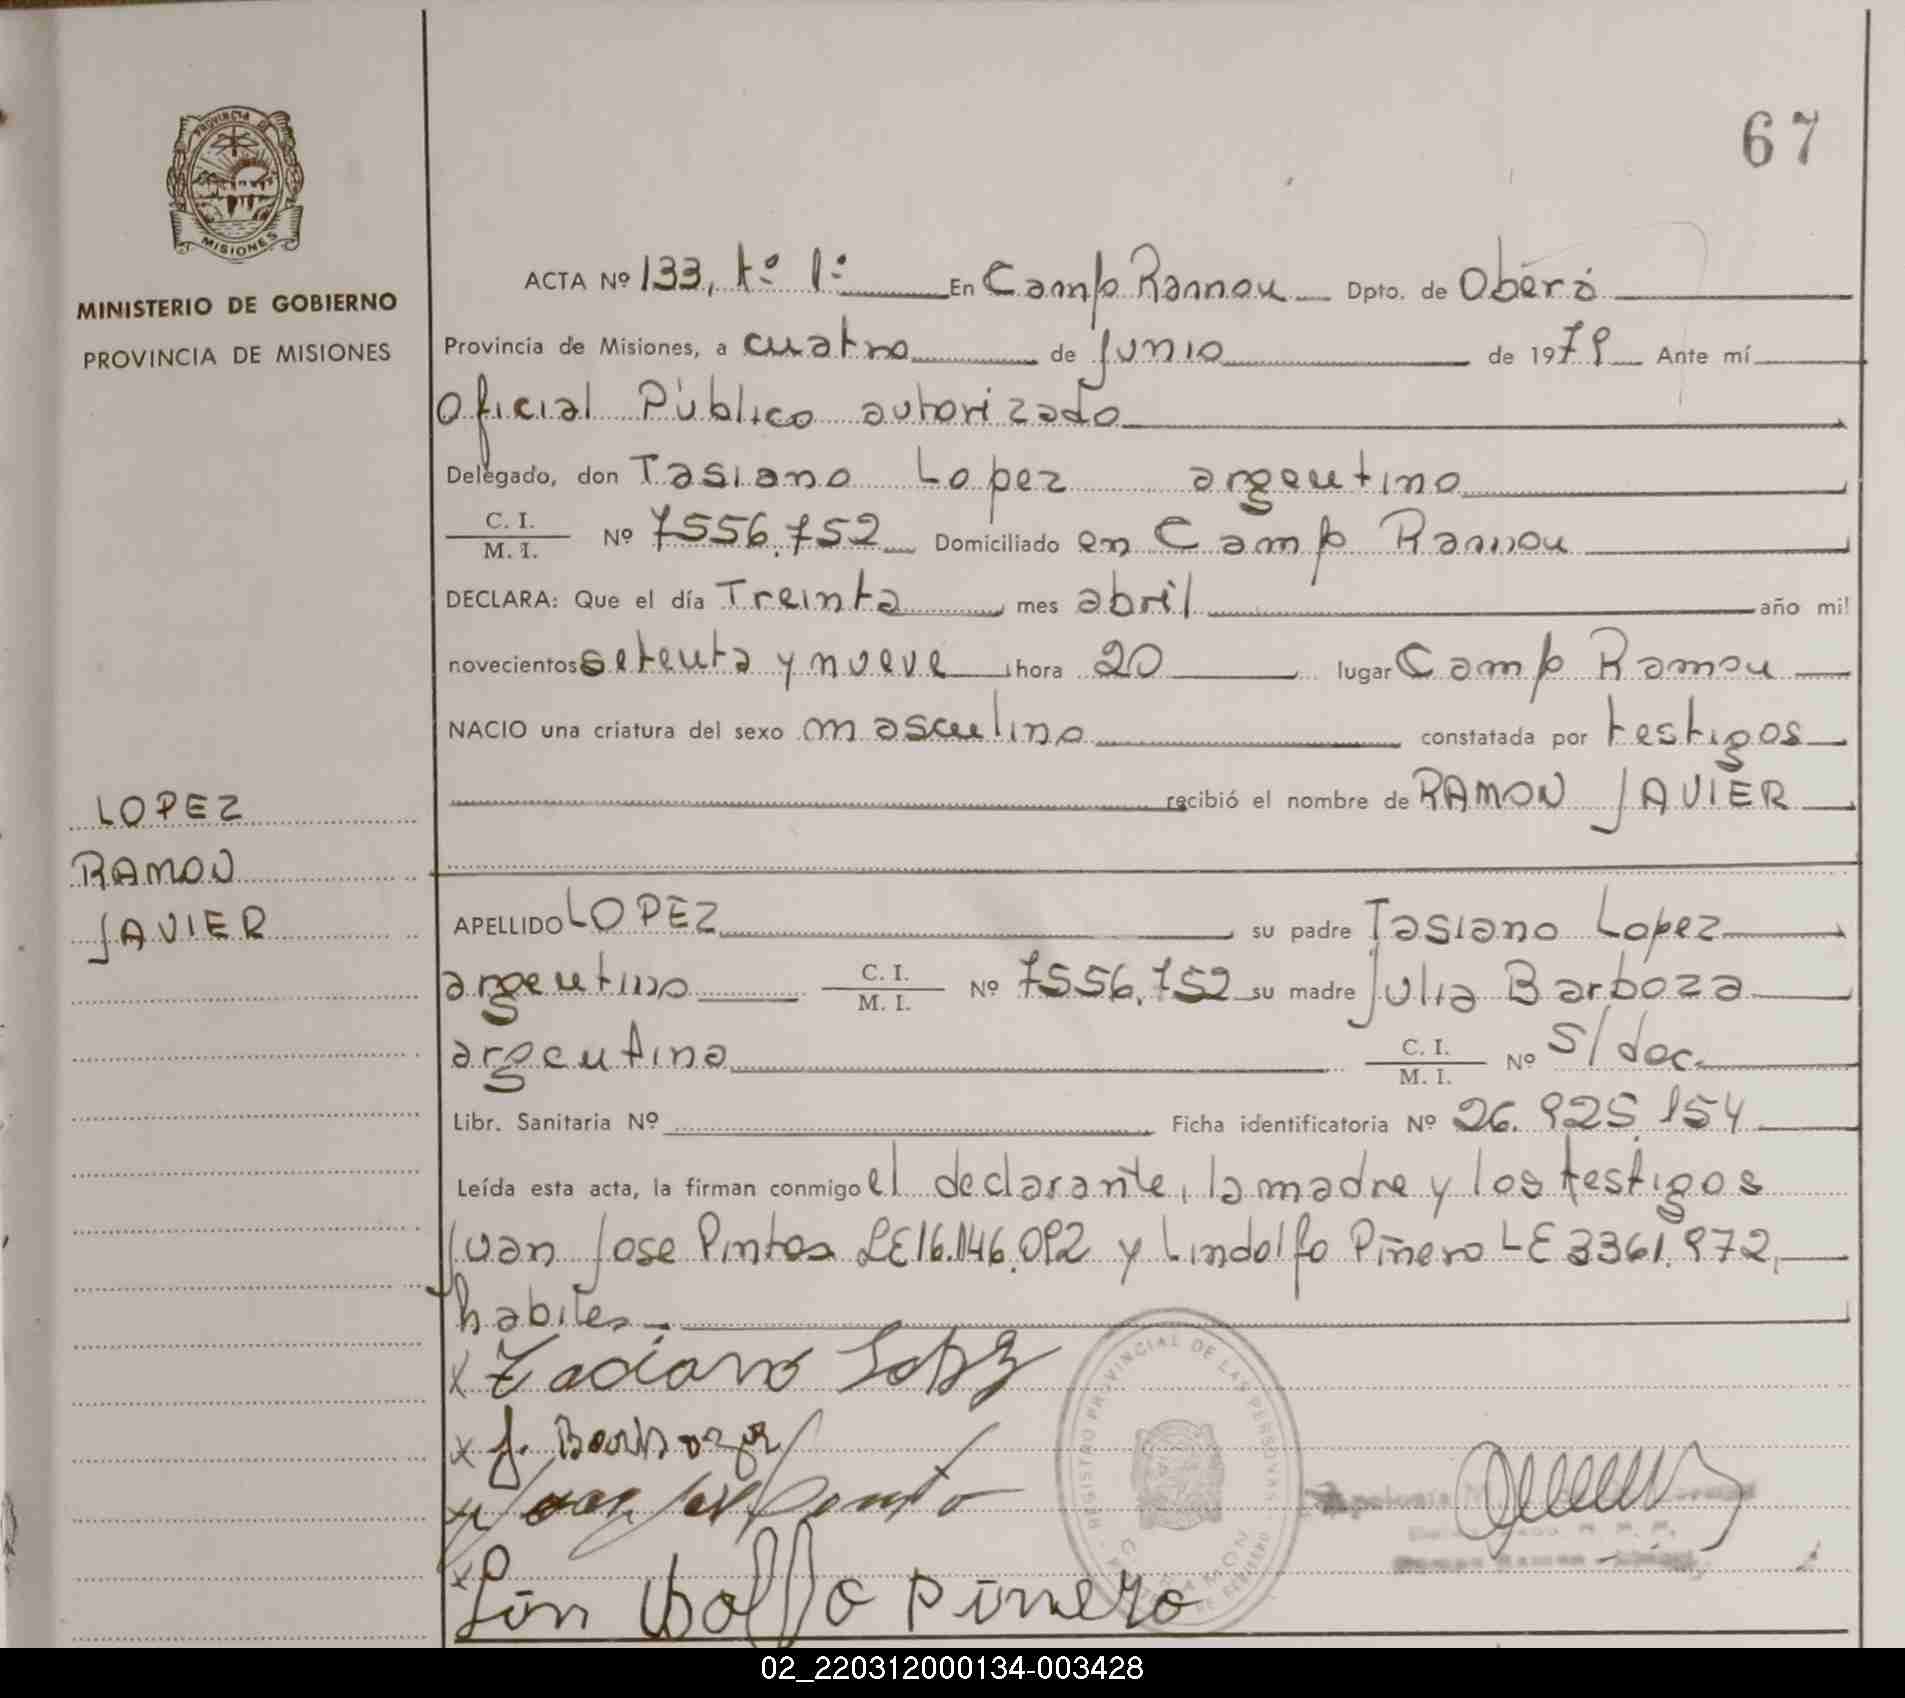 67
PROVINCIA DE
MISIONES
MINISTERIO DE GOBIERNO
PROVINCIA DE MISIONES
ACTA Nº 133, tº 1º En Campo Ramon Dpto. de Oberá
Provincia de Misiones, a cuatro de junio de 1979 Ante mí
Oficial Público autorizado
Delegado, don Tasiano Lopez argentino
C. I.
M. I. Nº 7556.752 Domiciliado en Campo Ramon
DECLARA: Que el día Treinta mes abril año mil
novecientos setenta y nueve hora 20 lugar Campo Ramon
NACIO una criatura del sexo masculino constatada por testigos
recibió el nombre de RAMON JAVIER
LOPEZ
RAMON
JAVIER
APELLIDO LOPEZ su padre Tasiano Lopez
argentino C. I.
M. I. Nº 7556.752 su madre Julia Barboza
argentina C. I.
M. I. Nº S/doc.
Libr. Sanitaria Nº Ficha identificatoria Nº 26.925.154
Leída esta acta, la firman conmigo el declarante, la madre y los testigos
Juan Jose Pintos LE16.146.092 y Lindolfo Piñero LE 3361.972,
habiles.
x Taciano Lopez
x J. Barboza
x Juan Jose Pinto
x Lindolfo Piñero
REGISTRO PROVINCIAL DE LAS PERSONAS
02_220312000134-003428